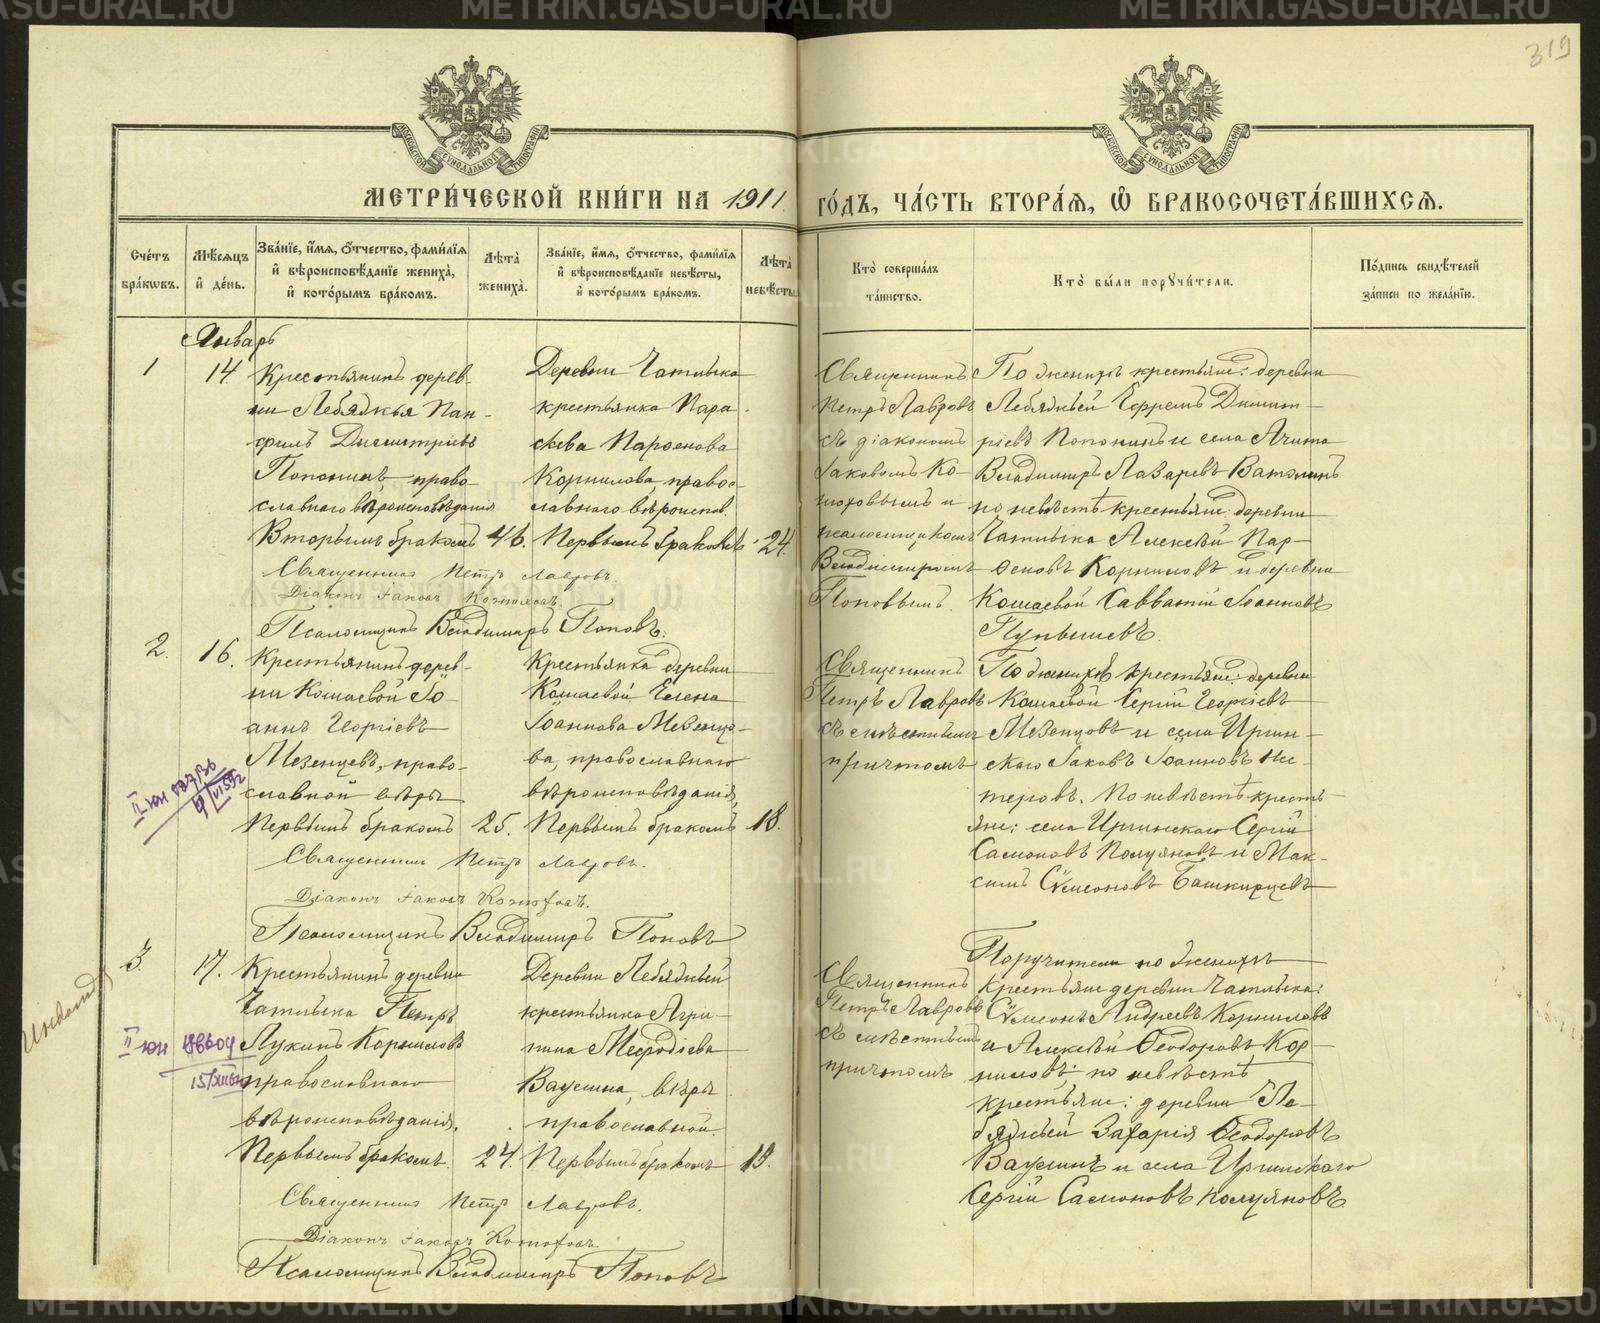 319
МОСКОВСКОЙ СѴНОДАЛЬНОЙ ТИПОГРАФІИ
МОСКОВСКОЙ СѴНОДАЛЬНОЙ ТИПОГРАФІИ
МЕТРИ́ЧЕСКОЙ КНИ́ГИ НА 1911 ГО́ДЪ, ЧА́СТЬ ВТОРА́Я, Ѽ БРАКОСОЧЕТА́ВШИХСЯ.
Сче́тъ бра́кωвъ.
Мѣ́сяцъ и҆ де́нь.
Зва́нїе, и҆́мя, ѻ҆́тчество, фами́лїя и҆ вѣроисповѣ́данїе жениха̀, и҆ кото́рымъ бра́комъ.
Лѣта̀ жениха̀.
Зва́нїе, и҆́мя, ѻ҆́тчество, фами́лїя и҆ вѣроисповѣ́данїе невѣ́сты, и҆ кото́рымъ бра́комъ.
Лѣта̀ невѣ́сты.
Кто̀ соверша́лъ та́инство.
Кто̀ бы́ли порꙋчи́тели.
По́дпись свидѣ́телей за́писи по жела́нїю.
Январь
1
14
Крестьянинъ дерев-
ни Лебяжья Пан-
филъ Димитріевъ
Попонинъ, право-
славнаго вѣроисповѣданія
Вторымъ бракомъ
46.
Деревни Чатлыка
крестьянка Пара-
скева Парѳенова
Корнилова, право-
славнаго вѣроиспов.
Первымъ бракомъ
24.
Священникъ
Петръ Лавровъ
съ діакономъ
Іаковомъ Ко-
и
псаломщикомъ
Владимиромъ
Поповымъ.
По женихѣ крестьяне: деревни
Лебяжьей Ефремъ Димит-
ріевъ Попонинъ и села Ачита
Владимиръ Лазаревъ Ватолинъ
по невѣстѣ крестьяне: деревни
Чатлыка Алексѣй Пар-
ѳеновъ Корниловъ и деревни
Кошаевой Савватій Іоанновъ
Пупышевъ.
Священникъ Петръ Лавровъ.
Діаконъ Іаковъ
Псаломщикъ Владимиръ Поповъ.
2.
16.
Крестьянинъ дерев-
ни Кошаевой Іо-
аннъ Георгіевъ
Мезенцевъ, право-
славной вѣры
Первымъ бракомъ
25.
Крестьянка деревни
Кошаевой Елена
Іоаннова Мезенцо-
ва, православнаго
вѣроисповѣданія,
Первымъ бракомъ
18.
Священникъ
Петръ Лавровъ
съ мѣстнымъ
причтомъ
По женихѣ крестьяне: деревни
Кошаевой Сергій Георгіевъ
Мезенцовъ и села Иргин-
скаго Іаковъ Іоанновъ Не-
теровъ. По невѣстѣ кресть-
яне: села Иргинскаго Сергій
Самсоновъ Полуяновъ и Мак-
симъ Сѵмеоновъ Башкирцевъ
Священникъ Петръ Лавровъ.
Діаконъ Іаковъ
Псаломщикъ Владимиръ Поповъ
3.
17.
Крестьянинъ деревни
Чатлыка Петръ
Лукинъ Корниловъ
православнаго
вѣроисповѣданія.
Первымъ бракомъ.
24.
Деревни Лебяжьей
крестьянка Агри-
пина Меѳодіева
Ваулина, вѣры
православной.
Первымъ бракомъ
19.
Священникъ
Петръ Лавровъ
съ мѣстнымъ
причтомъ
Поручители по женихѣ
крестьяне деревни Чатлыка:
Сѵмеонъ Андреевъ Корниловъ
и Алексѣй Ѳеодоровъ Кор-
ниловъ: по невѣстѣ
крестьяне: деревни Ле-
бяжьей Захарія Ѳеодоровъ
Ваулинъ и села Иргинскаго
Сергій Самсоновъ Полуяновъ
Священникъ Петръ Лавровъ.
Діаконъ Іаковъ
Псаломщикъ Владимиръ Поповъ
METRIKI.GASU-URAL.RU